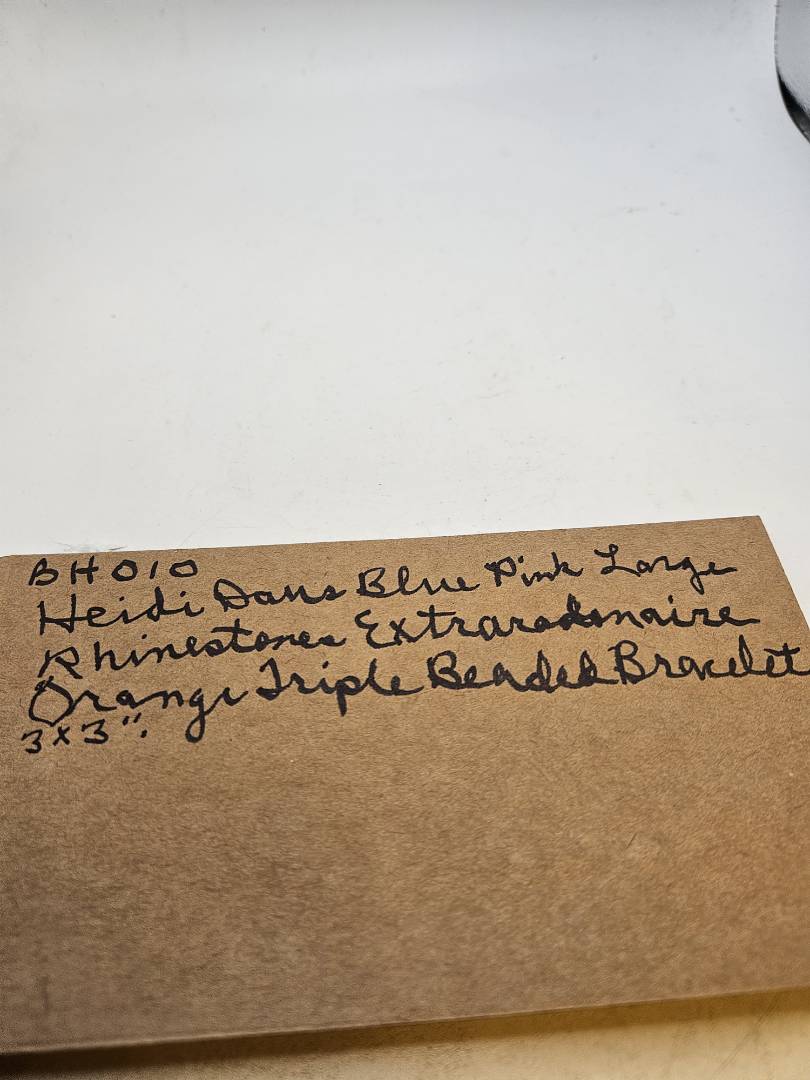 BH010
Heidi Daus Blue Pink Large
Rhinestones Extraradonaire
Orange Triple Beaded Bracelet
3x3".